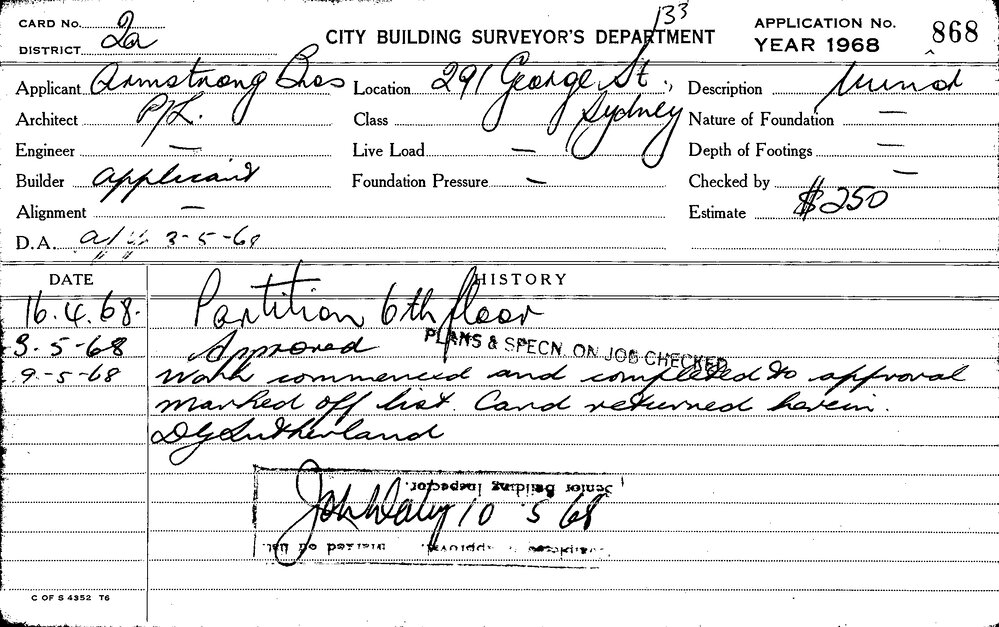 CARD No. 2a
133
DISTRICT
CITY BUILDING SURVEYOR'S DEPARTMENT
APPLICATION No. 868
YEAR 1968
Applicant Armstrong Bros Location 291 George St., Description Minor
Architect P/L. Class Sydney Nature of Foundation —
Engineer — Live Load — Depth of Footings —
Builder applicant Foundation Pressure — Checked by —
Alignment — Estimate $250
D.A. 3-5-68
DATE HISTORY
16.4.68. Partition 6th floor
3-5-68 Approved PLANS & SPECN. ON JOB CHECKED
9-5-68 Work commenced and completed to approval
marked off list. Card returned herein.
DG Sutherland
Senior Building Inspector.
John Daly 10 5 68
marked off list.
C OF S 4352 T6